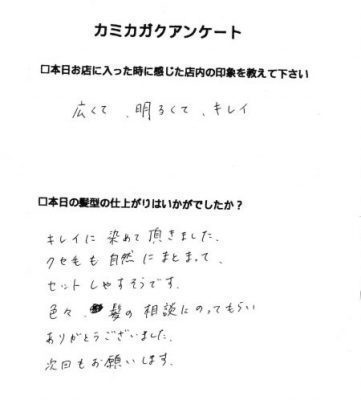 カミカガクアンケート
□本日お店に入った時に感じた店内の印象を教えて下さい
広くて、明るくて、キレイ
□本日の髪型の仕上がりはいかがでしたか？
キレイに染めて頂きました。
クセ毛も自然にまとまって、
セットしやすそうです。
色々、髪の相談にのってもらい
ありがとうございました。
次回もお願いします。